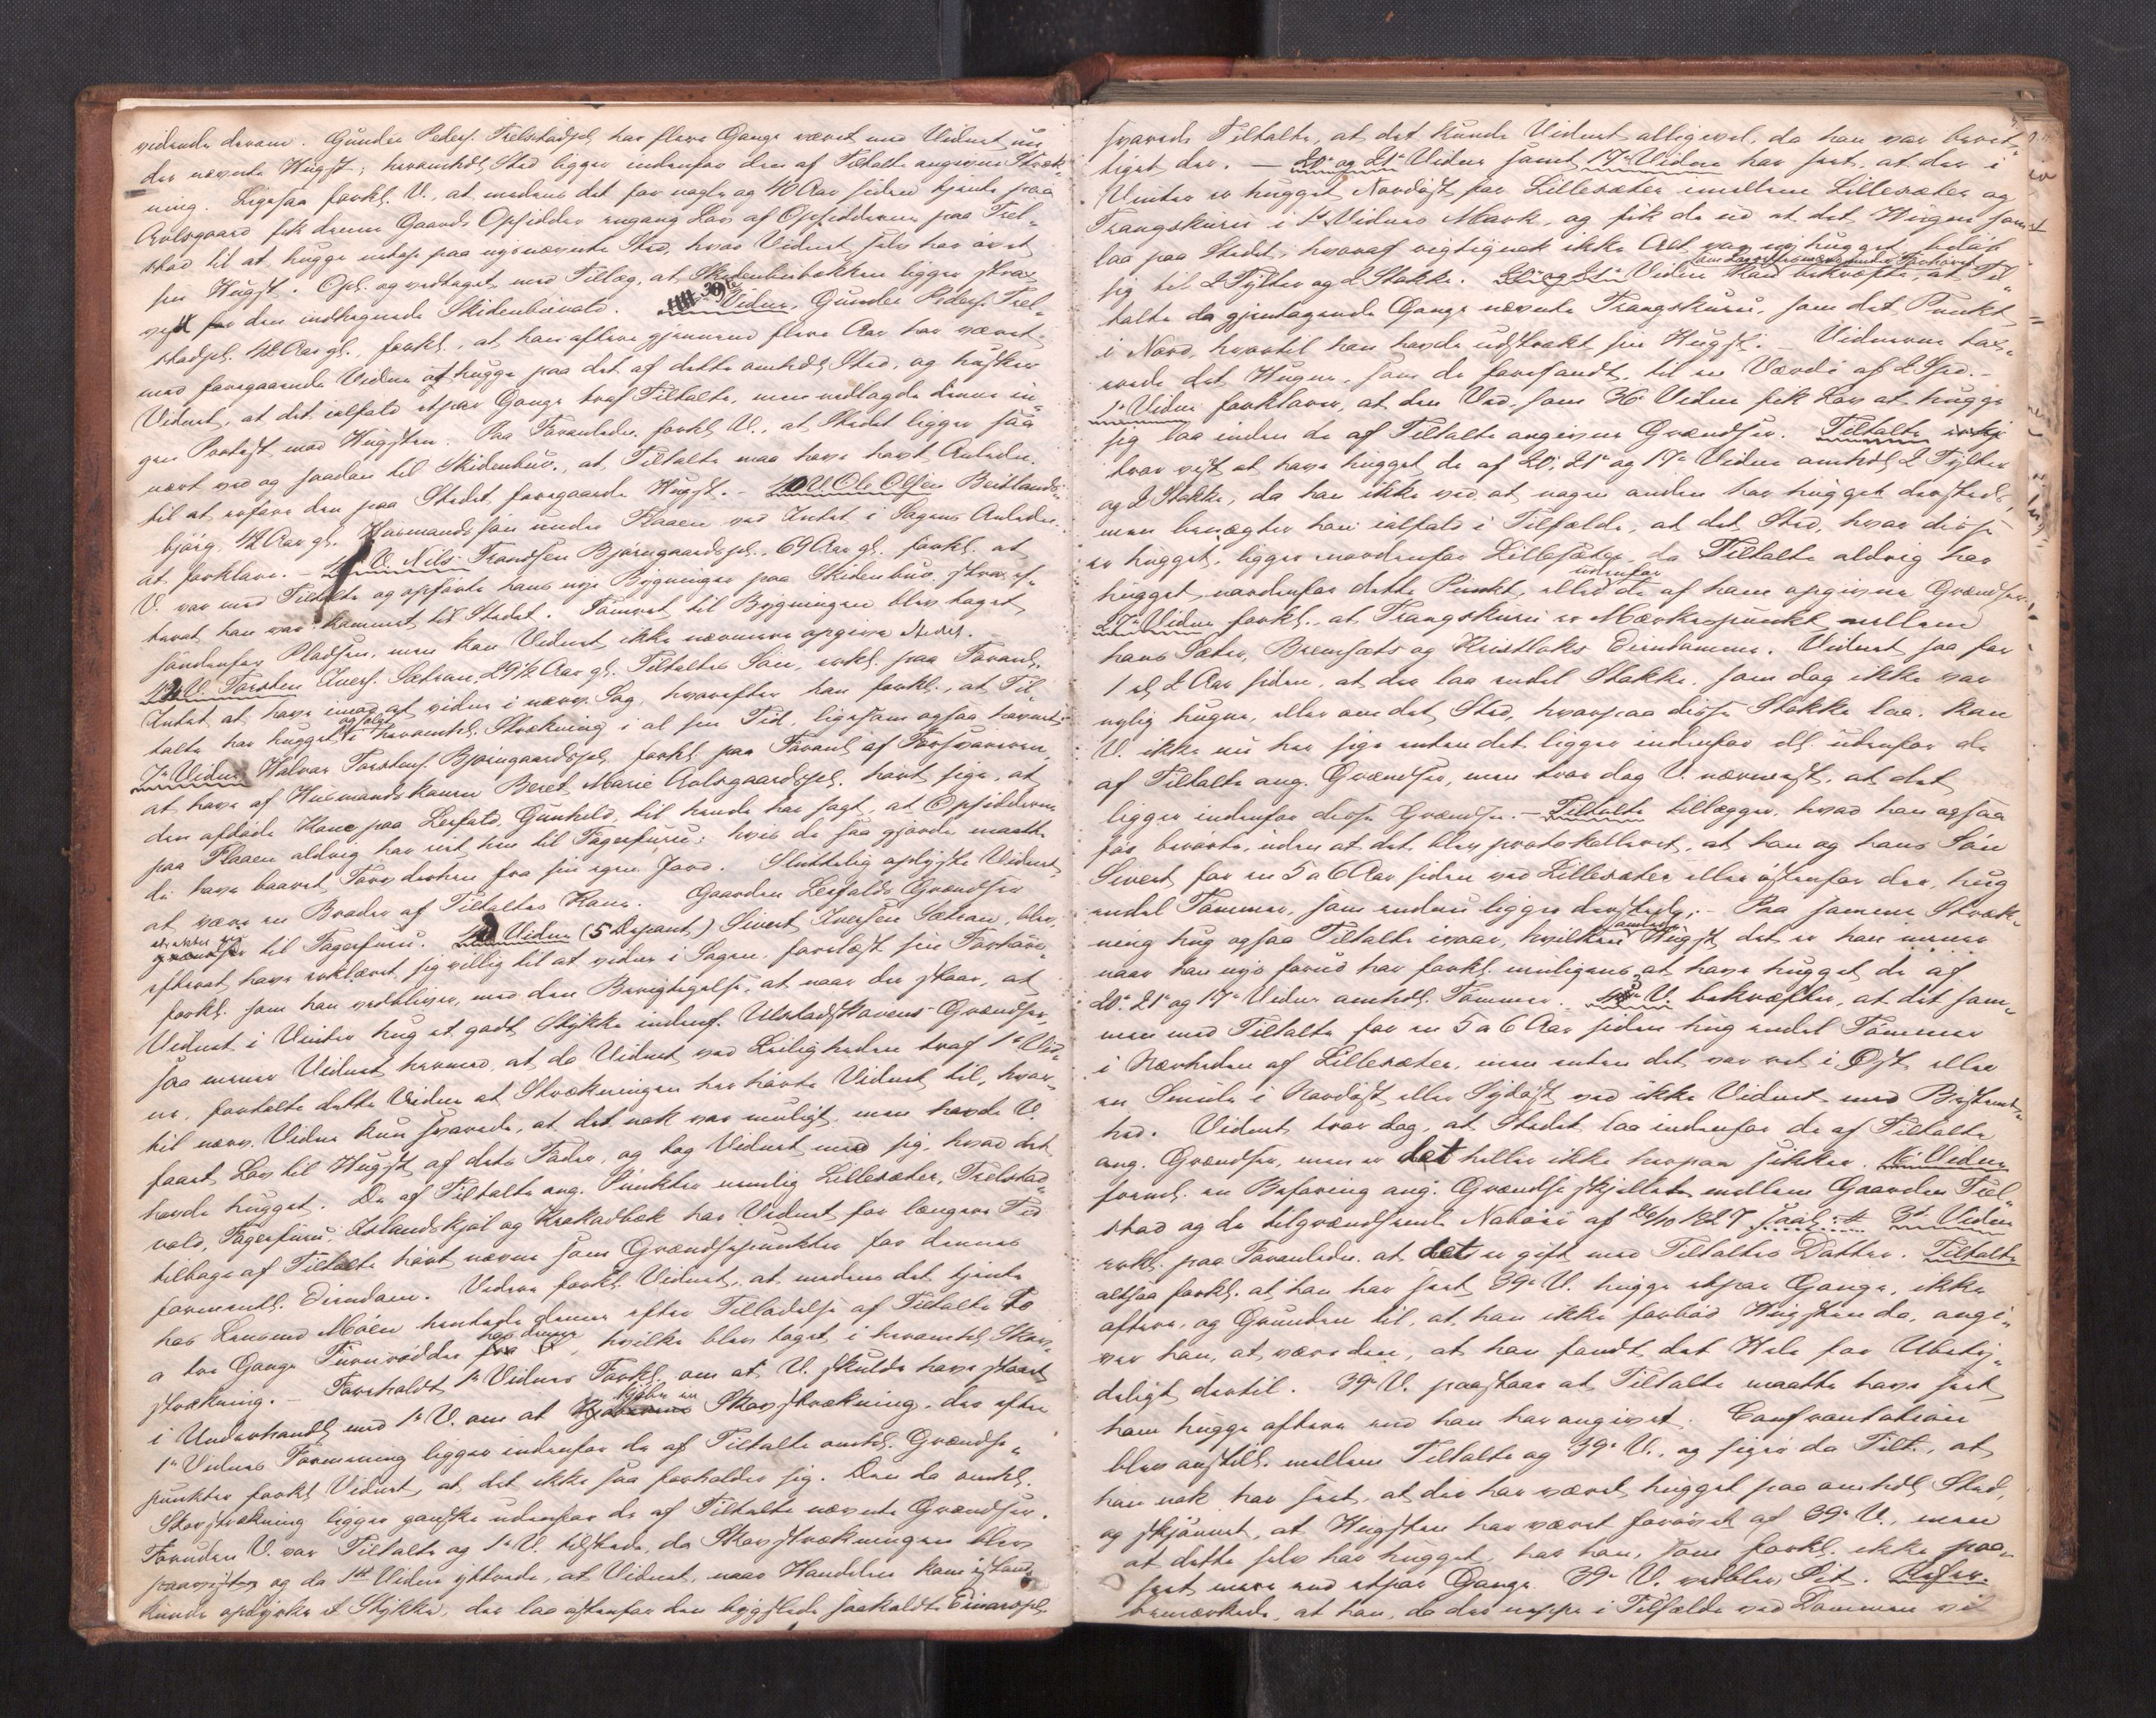 vidende derom. Gunder Peders. Trelstadpl. har flere Gange været med Vidnet un¬
der nævnte Hugst; heromhdl. Sted ligger indenfor den af Tiltalte angivne Stræk¬
ning. Ligesaa forkl. V., at medens det for nogle og 40 Aar siden tjente paa
Aalsgaard fik denne Gaards Opsidder engang Lov af Opsidderne paa Trel¬
stad til at hugge netop paa nysnævnte Sted, hvor Vidnet selv har øvet
sin Hugst. Opl. og vedtaget med Tillæg, at Skidenbubækken ligger strax
vest for den indhegnede Skidenbuvold. 39te Vidne, Gunder Peders. Trel¬
stadpl. 42 Aar gl., forkl., at han oftere gjennem flere Aar har været
med foregaaende Vidne at hugge paa det af dette omhdl. Sted, og husker
Vidnet, at det ialfald etpar Gange traf Tiltalte, men nedlagde denne in¬
gen Protest mod Hugsten. Paa Foranledn. forkl. V., at Stedet ligger saa
nært ved og saadan til Skidenbu, at Tiltalte maa have havt Anledn.
til at erfare den paa Stedet foregaaende Hugst. – 40 V. Ole Olsen Beitlands¬
bjørg, 42 Aar gl. Husmandssøn under Flaaen ved Intet i Sagens Anledn.
at forklare. – V. Nils Trondsen Bjørngaardspl. 69 Aar gl. forkl. at
V. var med Tiltalte og opførte hans nye Bygninger paa Skidenbu strax ef¬
terat han var kommet til Stedet. Tømret til Bygningen blev taget
søndenfor Pladsen, men kan Vidnet ikke nærmere opgive Stedet.
V. Torsten Ivers. Sætran, 29½ Aar gl. Tiltaltes Søn, erkl. paa Foranl.
Intet at have imod at vidne i nærv. Sag, hvorefter han forkl., at Til¬
talte har hugget og solgt i heromhdl. Strækning i al sin Tid, ligesom ogsaa
7de Vidne, Halvor Torstens. Bjørngaardspl. forkl. paa Foranl. af Forsvareren
at have af Husmandskonen Beret Marie Aalsgaardspl. hørt sige, at
den afdøde Kone paa Lesfald, Gunhild, til hende har sagt, at Opsidderne
paa Flaaen aldrig har eiet hen til Fagerfuru; hvis de saa gjorde maatte
de have baaret Torv derhen fra sin egen Jord. Sluttelig oplyste Vidnet
at være en Broder af Tiltaltes Kone. Gaarden Lesfalds Grændser
til Fagerfuru. Vidne (5 Depont.) Sivert Iversen Sætran, blev,
efterat have erklæret sig villig til at vidne i Sagen, forelæst sin Forhørs¬
forkl. som han vedbliver, med den Berigtigelse, at naar der staar, at
Vidnet i Vinter hug et godt Stykke indenf. Ulstadskovens Grændser,
saa mener Vidnet hermed, at da Vidnet ved Leiligheden traf 1ste Vid¬
ne, fortalte dette Vidne at Strækningen her hørte Vidnet til, hvor¬
til nærv. Vidne kun svarede, at det nok var muligt, men havde V.
faaet Lov til Hugst af dets Fader, og tog Vidnet med sig, hvad det
havde hugget. De af Tiltalte ang. Punkter nemlig Lillesæter, Trelstad¬
vold, Fagerfuru, Islandskjøl og Krokadbæk har Vidnet for længere Tid
tilbage af Tiltalte hørt nævne som Grændsepunkter for dennes
formentl. Eiendom. Videre forkl. Vidnet, at medens det tjente
hos Lensmd Moen hentede denne efter Tilladelse af Tiltalte to
a tre Gange Tururødder hos denne, hvilke blev taget i heromhdl. Skov¬
strækning. – Foreholdt 1ste Vidnes Forkl. om at V. skulde have staaet
i Underhandl. med 1ste V. om at kjøbe en Skovstrækning, der efter
1ste Vidnes Formening ligger indenfor de af Tiltalte omhdl. Grændse¬
punkter forkl. Vidnet, at det ikke saa forholder sig. Den da omhdl.
Skovstrækning ligger ganske udenfor de af Tiltalte nævnte Grændser.
Foruden V. var Tiltalte og 1ste V. tilstede, da Skovstrækningen blev
paavist og da 1ste Vidne yttrede, at Vidnet, naar Handelen kom istand
kunde opdyrke et Stykke, der laa østenfor den bygslede saakaldte Einarspl.
svarede Tiltalte, at det kunde Vidnet alligevel, da han var beret¬
tiget der. – 20de og 21de Vidne samt 17de Vidne har seet, at der i
Vinter er hugget Nordøst for Lillesæter imellem Lillesæter og
Trangskuru i 1ste Vidnes Mark, og fik de ud at det Hugne som
laa paa Stedet, hvoraf rigtignok ikke Alt var nyhugget, beløb
sig til 2 Tylter og 2 Stokke. 20de og 21de Vidne kan bekræfte, at Til¬
talte da gjentagende Gange nævnte Trangskuru, som det Punkt
i Nord, hvortil han havde udstrakt sin Hugst. Vidnerne tax¬
erede det Hugne, som de forefandt, til en Værdi af 2 Spd. –
1ste Vidne forklarer, at den Ved, som 36te Vidne fik Lov at hugge
sig laa inden de af Tiltalte angivne Grændser. Tiltalte
tror vist at have hugget de af 20de, 21de og 17de Vidne omhdl. 2 Tylter
og 2 Stokke, da han ikke ved, at nogen anden har hugget dersteds,
men benægter han ialfald i Tilfælde, at det Sted, hvor disse
er hugget, ligger nordenfor Lillesæter, da Tiltalte aldrig har
hugget nordenfor dette Punkt, eller udenfor de af ham opgivne Grændser.
27de Vidne forkl. at Trangskuru er Mærkespunkt mellem
hans Sæter, Bremsæts og Kristloks Eiendomme. Vidnet saa for
1 el. 2 Aar siden, at der laa endel Stokke, som dog ikke var
nylig hugne, eller om det Sted, hvorpaa disse Stokke laa, kan
V. ikke nu her sige enten det ligger indenfor ell. udenfor de
af Tiltalte ang. Grændser, men tror dog V. nærmest, at det
ligger indenfor disse Grændser. – Tiltalte tillægger, hvad han ogsaa
før berørte, uden at det blev protokolleret, at han og hans Søn
Sivert for en 5 a 6 Aar siden ved Lillesæter eller østenfor der, hug
endel Tømmer, som endnu ligger dersteds; – Paa samme Stræk¬
ning hug ogsaa Tiltalte ivaar, hvilken samlede Hugst det er han mener
naar han nys forud har forkl. muligens at have hugget de af
20de 21de og 17de Vidne omhdl. Tømmer. V. bekræfter, at det sam¬
men med Tiltalte for en 5 a 6 Aar siden hug endel Tømmer
i Nærheden af Lillesæter, men enten det var ret i Øst eller
en Smule i Nordøst eller Sydøst ved ikke Vidnet med Bestemt¬
hed. Vidnet tror dog, at Stedet laa indenfor de af Tiltalte
ang. Grændser, men er det heller ikke herpaa sikker. Vidne
freml. en Befaring ang. Grændseskjellet mellem Gaarden Trel¬
stad og de tilgrændsende Naboer af 26/10 1827 3die Vidne
erkl. paa Foranledn. at det er gift med Tiltaltes Datter. Tiltalte
altsaa forkl. at han har seet 39te V. hugge etpar Gange, ikke
oftere, og Grunden til, at han ikke forbød Hugsten da, angi¬
ver han, at være den, at han fandt det Hele for Ubety¬
deligt dertil. 39te V. paastaar at Tiltalte maatte have seet
ham hugge oftere end han har angivet. Confrontation
blev anstill. mellem Tiltalte og 39te V., og siger da Tilt., at
han nok har seet, at der har været hugget paa omhdl. Sted,
og skjønnet, at Hugsten har været forøvet af 39te V., men
at dette selv har hugget, har han, som forkl. ikke paa¬
seet mere end etpar Gange. 39te V. vedblev Sit. Refer.
bemærkede, at han, da der neppe i Tilfælde ved Dommen vil